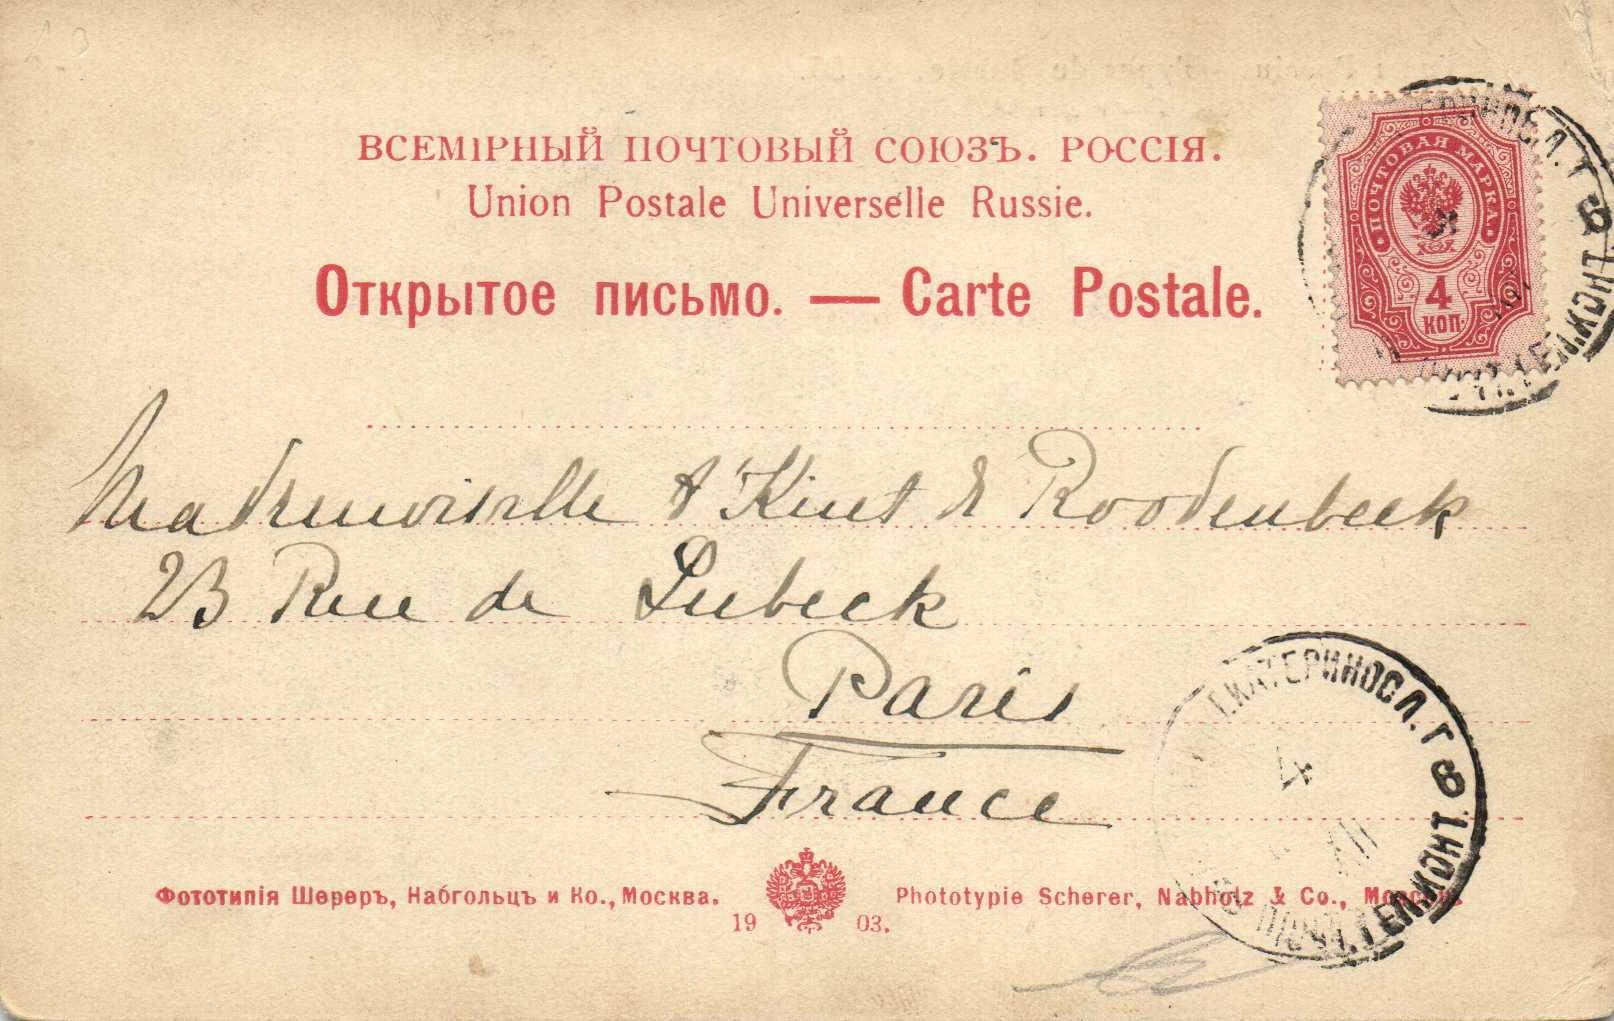 ВСЕМІРНЫЙ ПОЧТОВЫЙ СОЮЗЪ. РОССІЯ.
Union Postale Universelle Russie.
Открытое письмо. — Carte Postale.
ПОЧТОВАЯ МАРКА
4
КОП.
Mademoiselle t'Kint de Roodenbeek
23 Rue de Lubeck
Paris
France
ЕКАТЕРИНОСЛ. Г
8
Фототипія Шереръ, Набгольцъ и Ко., Москва.
Phototypie Scherer, Nabholz & Co., Moscou.
19 03.